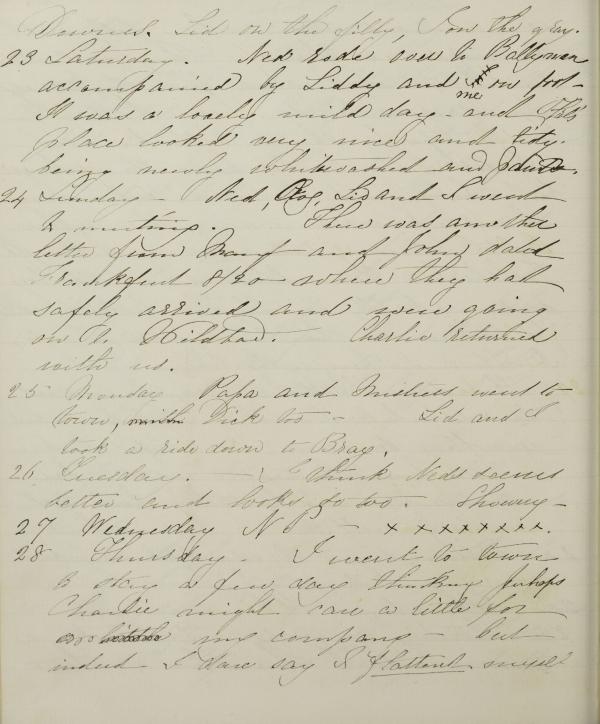 Downes. Lid on the filly, I on the gray.
23 Saturday. Ned rode over to Ballyman
accompanied by Liddy and me on foot -
It was a lovely mild day - and
place looked very nice and tidy.
being newly whitewashed and
24 Sunday - Ned, Lid and I went
to meeting. There was another
letter from Mary and John dated
Frankfurt 8/20 where they had
safely arrived and were going
on to Charlie returned
with us.
25 Monday Papa and Mistress went to
town, Dick too - Lid and I
took a ride down to Bray.
26 Tuesday. - I think Ned seems
better and looks so too. Showery -
27 Wednesday N - x x x x x x x x
28 Thursday. I went to town
to stay a few days thinking perhaps
Charlie might care a little for
my company - but
indeed I dare say I flattered myself